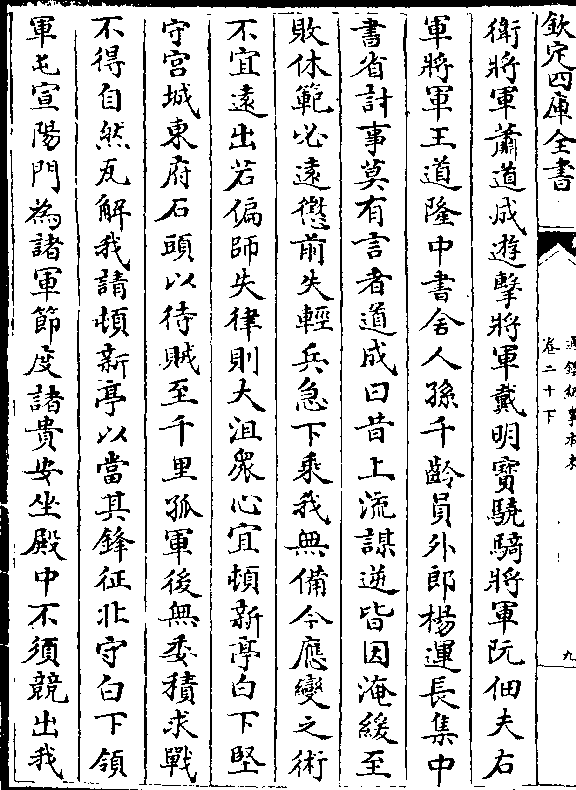 欽定四庫全書
通鑑紀事本末
卷二十下
九
衛將軍蕭道成遊擊將軍戴明寶驍騎將軍阮佃夫右
軍將軍王道隆中書舍人孫千齡員外郎楊運長集中
書省計事莫有言者道成曰昔上流謀逆皆因淹緩至
敗休範必遠懲前失輕兵急下乘我無備今應變之術
不宜遠出若偏師失律則大沮衆心宜頓新亭白下堅
守宫城東府石頭以待賊至千里孤軍後無委積求戰
不得自然瓦解我請頓新亭以當其鋒征北守白下領
軍屯宣陽門為諸軍節度諸貴安坐殿中不須競出我